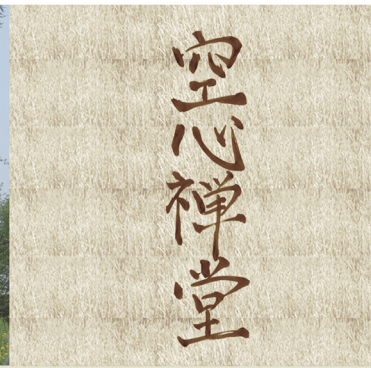 空心禅堂